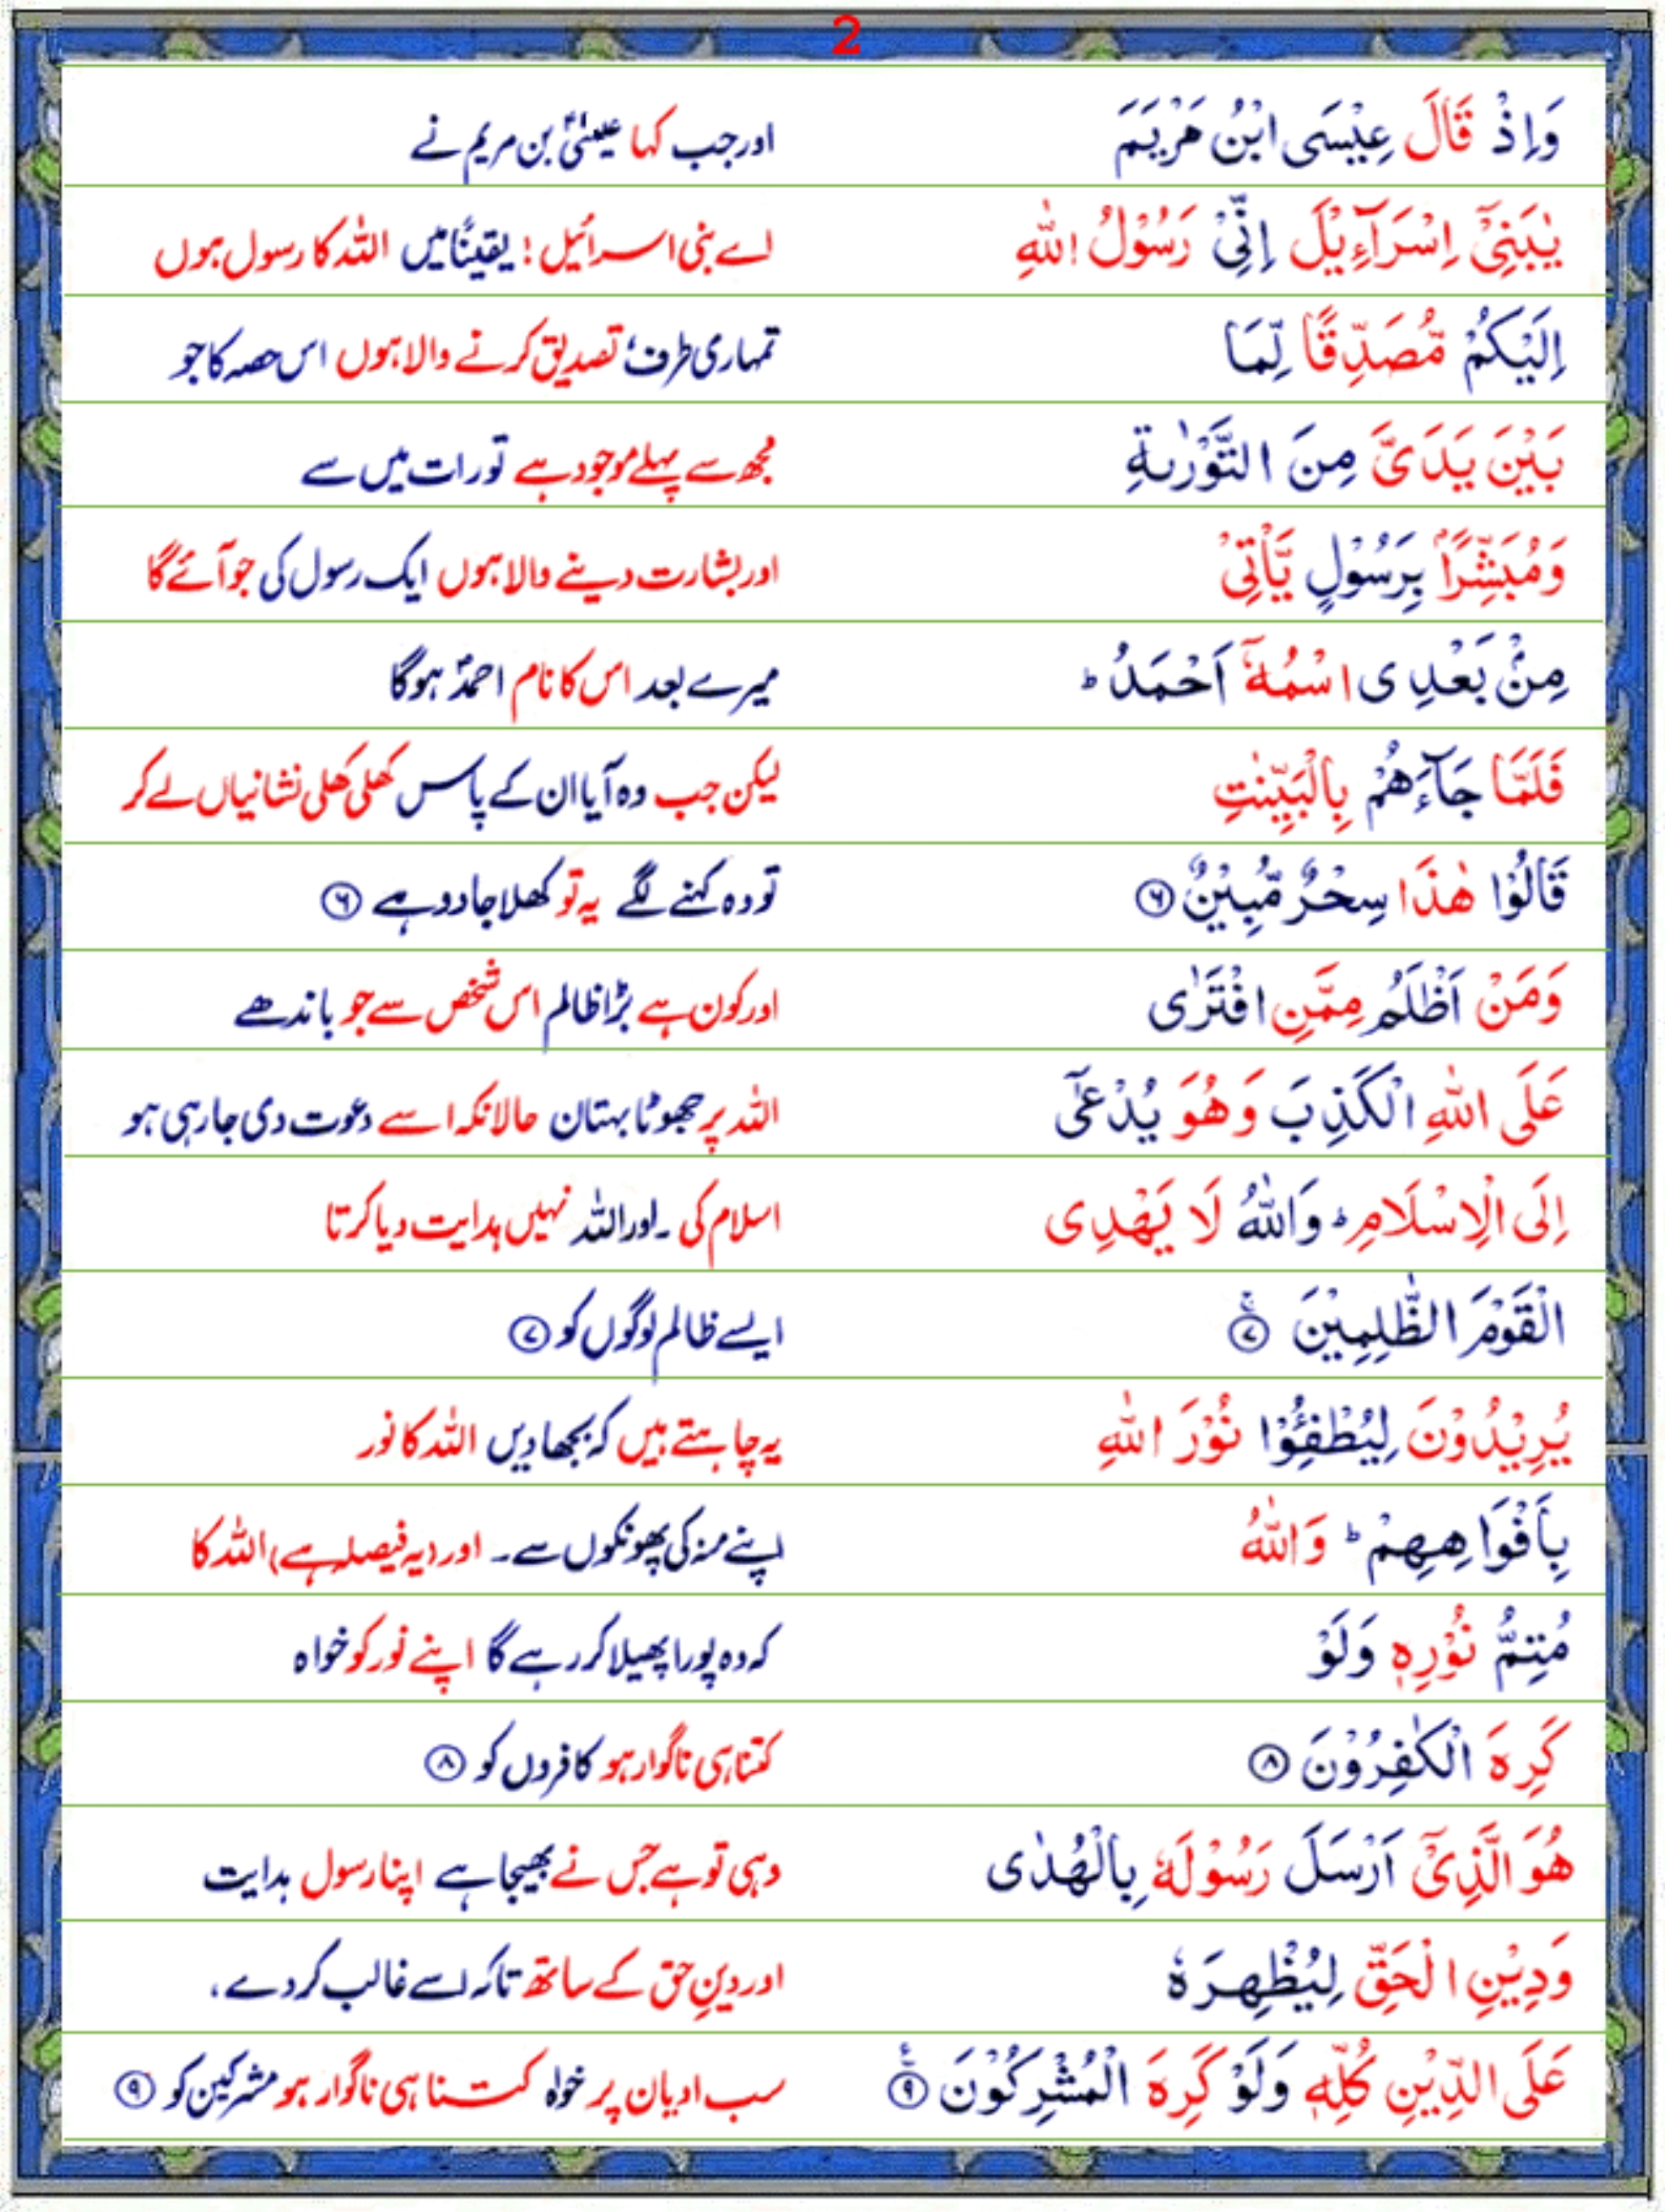 2
وَاِذْ قَالَ عِيْسَى ابْنُ مَرْيَمَ اور جب کہا عیسیٰؑ بن مریم نے
يٰبَنِيْٓ اِسْرَآءِيْلَ اِنِّيْ رَسُوْلُ اللّٰهِ اے بنی اسرائیل ! یقیناً میں اللہ کا رسول ہوں
اِلَيْكُمْ مُّصَدِّقًا لِّمَا تمہاری طرف، تصدیق کرنے والا ہوں اس حصہ کا جو
بَيْنَ يَدَيَّ مِنَ التَّوْرٰىةِ مجھ سے پہلے موجود ہے تورات میں سے
وَمُبَشِّرًۢا بِرَسُوْلٍ يَّاْتِيْ اور بشارت دینے والا ہوں ایک رسول کی جو آئے گا
مِنْۢ بَعْدِي اسْمُهٗٓ اَحْمَدُ ؕ میرے بعد اس کا نام احمدؐ ہوگا
فَلَمَّا جَآءَهُمْ بِالْبَيِّنٰتِ لیکن جب وہ آیا ان کے پاس کھلی کھلی نشانیاں لے کر
قَالُوْا هٰذَا سِحْرٌ مُّبِيْنٌ ۶ تو وہ کہنے لگے یہ تو کھلا جادو ہے ۶
وَمَنْ اَظْلَمُ مِمَّنِ افْتَرٰى اور کون ہے بڑا ظالم اس شخص سے جو باندھے
عَلَى اللّٰهِ الْكَذِبَ وَهُوَ يُدْعٰٓى اللہ پر جھوٹا بہتان حالانکہ اسے دعوت دی جارہی ہو
اِلَى الْاِسْلَامِ ؕ وَاللّٰهُ لَا يَهْدِى اسلام کی ۔ اور اللہ نہیں ہدایت دیا کرتا
الْقَوْمَ الظّٰلِمِيْنَ ۚ ۷ ایسے ظالم لوگوں کو ۷
يُرِيْدُوْنَ لِيُطْفِـُٔوْا نُوْرَ اللّٰهِ یہ چاہتے ہیں کہ بجھادیں اللہ کا نور
بِاَفْوَاهِهِمْ ؕ وَاللّٰهُ اپنے منہ کی پھونکوں سے ۔ اور (یہ فیصلہ ہے) اللہ کا
مُتِمُّ نُوْرِهٖ وَلَوْ کہ وہ پورا پھیلا کر رہے گا اپنے نور کو خواہ
كَرِهَ الْكٰفِرُوْنَ ۸ کتنا ہی ناگوار ہو کافروں کو ۸
هُوَ الَّذِيْٓ اَرْسَلَ رَسُوْلَهٗ بِالْهُدٰى وہی تو ہے جس نے بھیجا ہے اپنا رسول ہدایت
وَدِيْنِ الْحَقِّ لِيُظْهِرَهٗ اور دینِ حق کے ساتھ تاکہ اسے غالب کردے ،
عَلَى الدِّيْنِ كُلِّهٖ وَلَوْ كَرِهَ الْمُشْرِكُوْنَ ۹ سب ادیان پر خواہ کتنا ہی ناگوار ہو مشرکین کو ۹